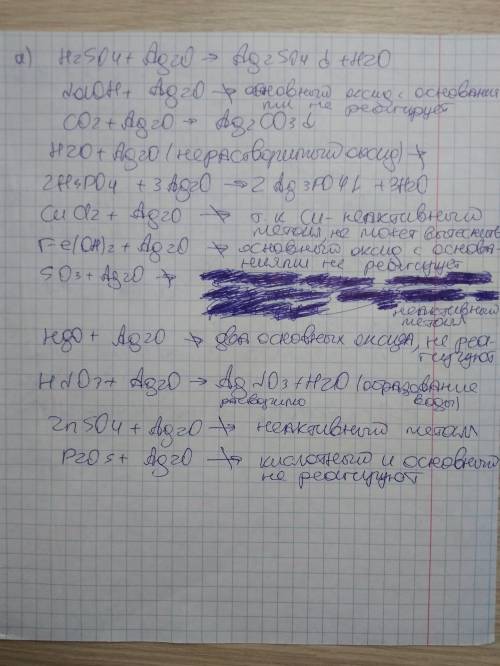 а) H2SO4 + Ag2O → Ag2SO4 ↓ + H2O
NaOH + Ag2O ↛ основный оксид с основани
ями не реагирует
CO2 + Ag2O → Ag2CO3 ↓
H2O + Ag2O (нерастворимый оксид) ↛
2H3PO4 + 3Ag2O → 2Ag3PO4 ↓ + 3H2O
CuCl2 + Ag2O ↛ т.к Cu - неактивный
металл, не может вытеснить
Fe(OH)2 + Ag2O ↛ основный оксид с основа
ниями не реагирует
SO3 + Ag2O ↛
неактивный
металл
HgO + Ag2O ↛ два основных оксида, не реа
гируют
HNO3 + Ag2O → AgNO3 + H2O (образование
растворимо воды)
ZnSO4 + Ag2O ↛ неактивный металл
P2O5 + Ag2O ↛ кислотный и основный
не реагируют